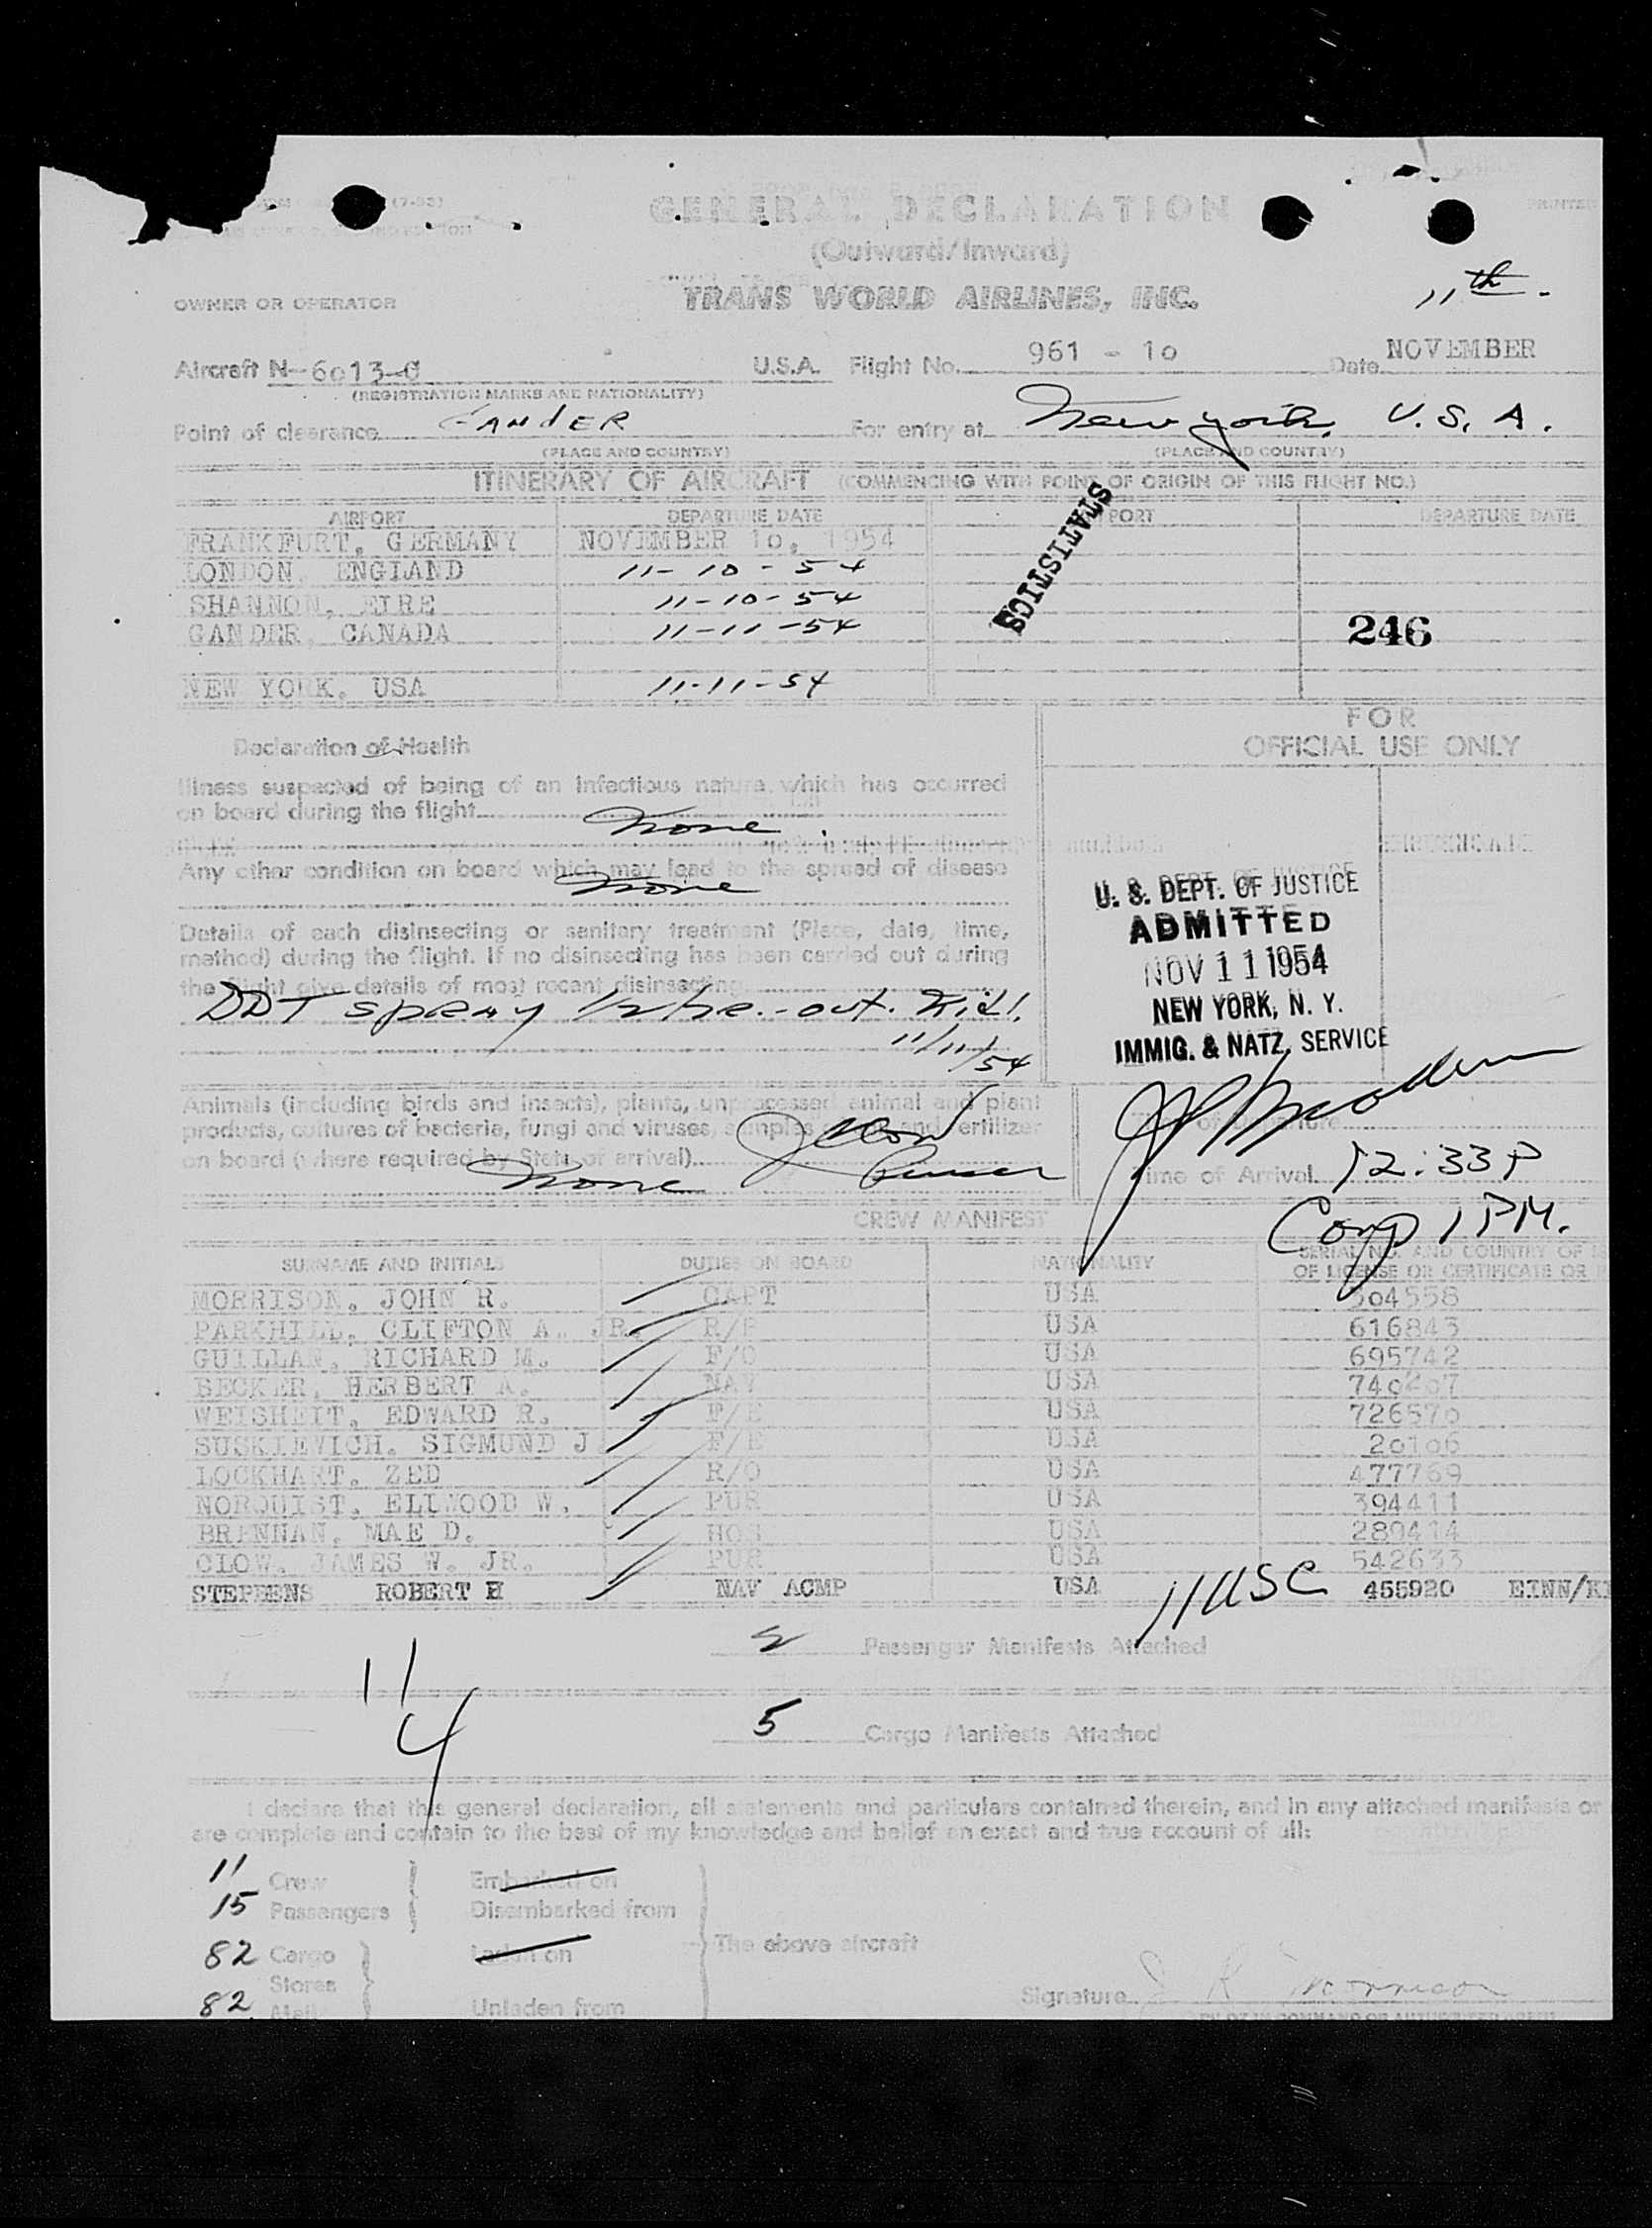 (7-53)
GENERAL DECLARATION
PRINTED
(Outward/Inward)
OWNER OR OPERATOR TRANS WORLD AIRLINES, INC. 11th.
Aircraft N-6013-C U.S.A. Flight No. 961 - 10 Date NOVEMBER
(REGISTRATION MARKS AND NATIONALITY)
Point of clearance GANDER For entry at New York, U.S.A.
(PLACE AND COUNTRY) (PLACE AND COUNTRY)
ITINERARY OF AIRCRAFT (COMMENCING WITH POINT OF ORIGIN OF THIS FLIGHT NO.)
AIRPORT DEPARTURE DATE PORT DEPARTURE DATE
FRANKFURT, GERMANY NOVEMBER 10, 1954
LONDON, ENGLAND 11-10-54
SHANNON, EIRE 11-10-54
GANDER, CANADA 11-11-54
NEW YORK, USA 11-11-54
STATISTICS
246
FOR
OFFICIAL USE ONLY
Declaration of Health
Illness suspected of being of an infectious nature which has occurred
on board during the flight
None.
Any other condition on board which may lead to the spread of disease
None
Details of each disinsecting or sanitary treatment (Place, date, time,
method) during the flight. If no disinsecting has been carried out during
the flight give details of most recent disinsecting
DDT spray 1/2 hr. out.
11/11/54
U. S. DEPT. OF JUSTICE
ADMITTED
NOV 11 1954
NEW YORK, N. Y.
IMMIG. & NATZ. SERVICE
Animals (including birds and insects), plants, unprocessed animal and plant
products, cultures of bacteria, fungi and viruses, samples and fertilizer
on board (where required by State of arrival)
None
JClow
Purser
of Departure
Time of Arrival 12:33P
Comp 1 PM.
CREW MANIFEST
SURNAME AND INITIALS DUTIES ON BOARD NATIONALITY SERIAL NO. AND COUNTRY OF
OF LICENSE OR CERTIFICATE OR
MORRISON, JOHN R. CAPT USA 304558
PARKHILL, CLIFTON A. JR. USA 616843
GUILLAN, RICHARD M. F/O USA 695742
BECKER, HERBERT A. NAV USA 740267
WEISHEIT, EDWARD R. F/E USA 726576
SUSKIEVICH, SIGMUND J F/E USA 20106
LOCKHART, ZED R/O USA 477769
NORQUIST, ELLWOOD W. PUR USA 394411
BRENNAN, MAE D. HOS USA 289414
CLOW, JAMES W. JR. PUR USA 542633
STEPHENS ROBERT H NAV ACMP USA 455920
11 USC
2 Passenger Manifests Attached
11
4
5 Cargo Manifests Attached
I declare that this general declaration, all statements and particulars contained therein, and in any attached manifests or
are complete and contain to the best of my knowledge and belief an exact and true account of all:
11 Crew Embarked on
15 Passengers Disembarked from
82 Cargo Laden on The above aircraft
Stores
82 Mail Unladen from
Signature J R Morrison
PILOT IN COMMAND OR AUTHORIZED AGENT